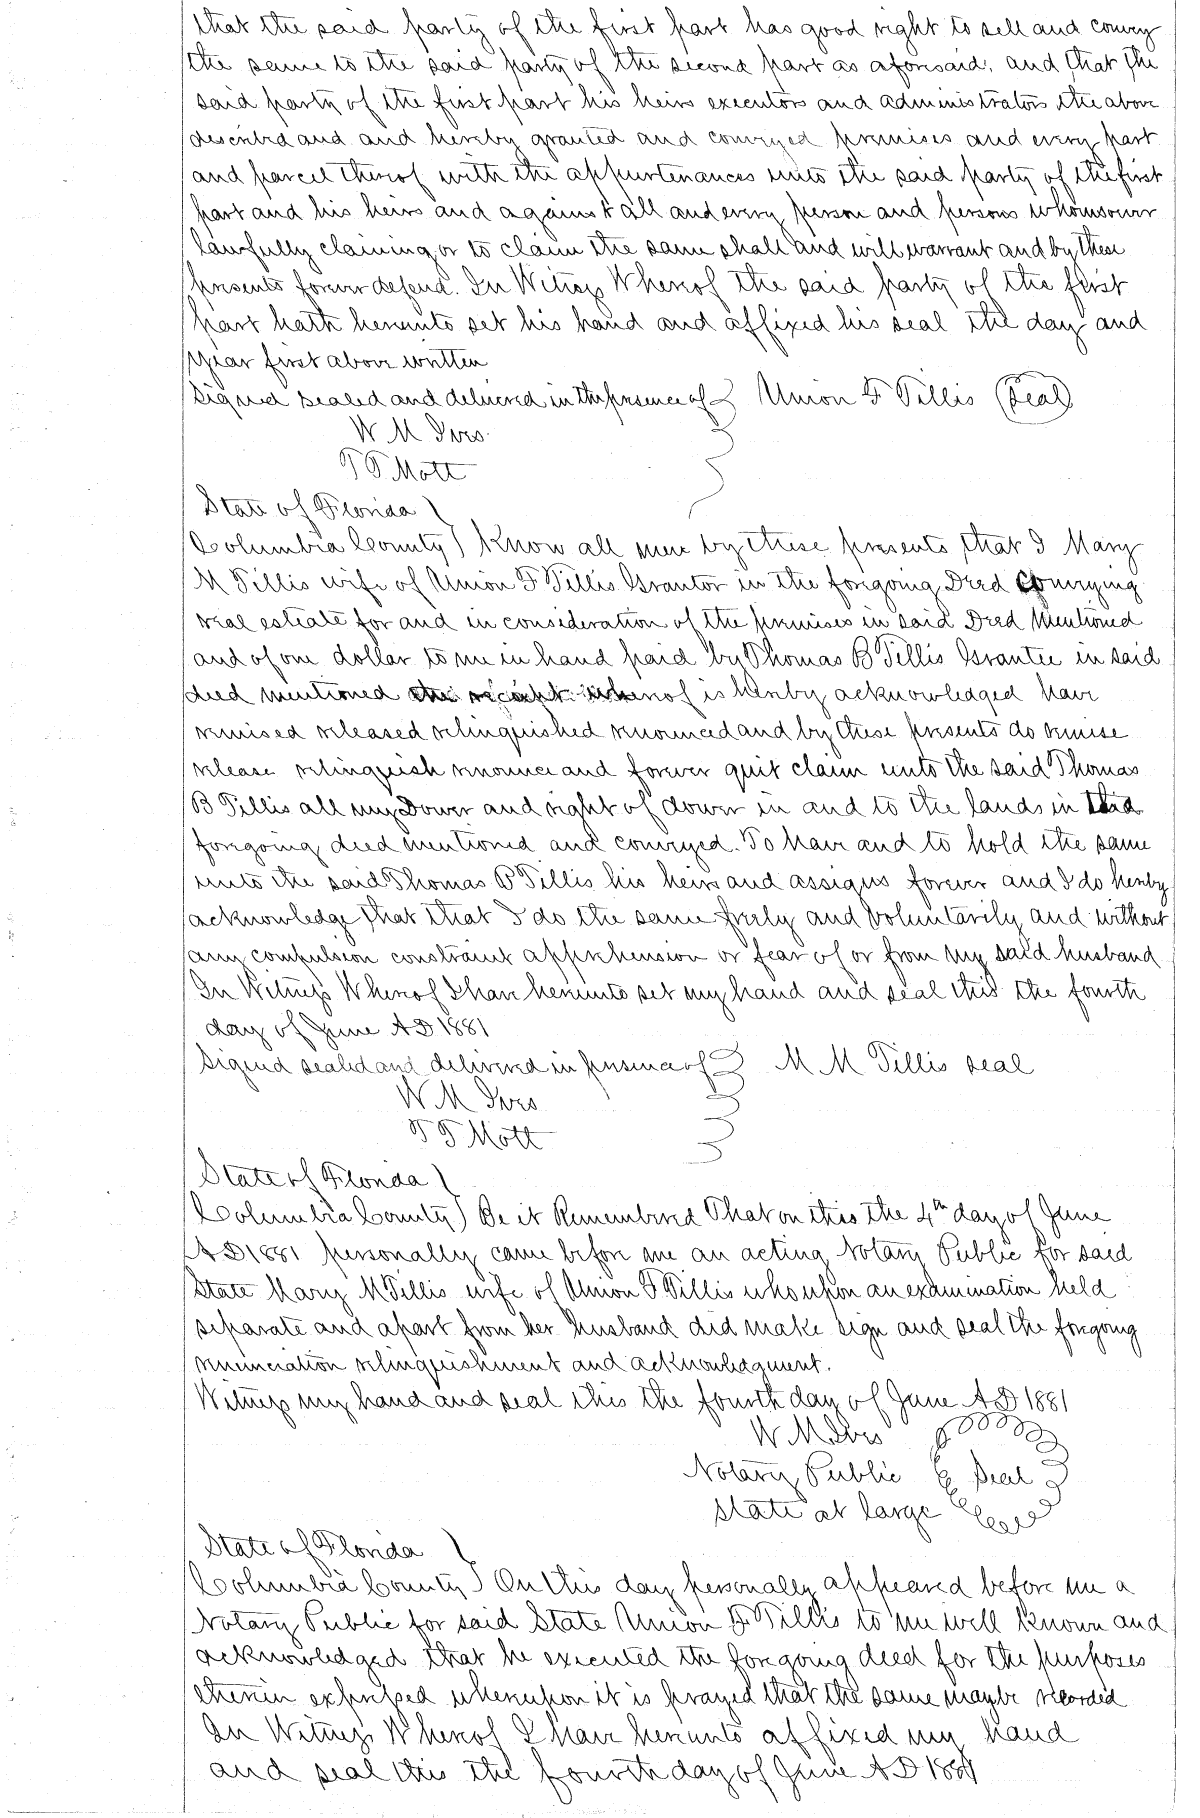 that the said party of the first part has good right to sell and convey
the same to the said party of the second part as aforesaid, and that the
said party of the first part his heirs executors and administrators the above
described and and hereby granted and conveyed premises and every part
and parcel thereof with the appurtenances unto the said party of the first
part and his heirs and against all and every person and persons whomsoever
lawfully claiming or to claim the same shall and will warrant and by these
presents forever defend. In Witness Whereof the said party of the first
part hath hereunto set his hand and affixed his seal the day and
year first above written
Signed sealed and delivered in the presence of Union F Tillis (Seal)
W M Ives
T T Mott
State of Florida
Columbia County Know all men by these presents that I Mary
M Tillis wife of Union F Tillis Grantor in the forgoing Deed Conveying
real estate for and in consideration of the premises in said Deed Mentioned
and of one dollar to me in hand paid by Thomas B Tillis Grantee in said
deed mentioned the receipt whereof is hereby acknowledged have
remised released relinquished renounced and by these presents do remise
release relinquish renounce and forever quit claim unto the said Thomas
B Tillis all my Dower and right of dower in and to the lands in
forgoing deed mentioned and conveyed. To have and to hold the same
unto the said Thomas B Tillis his heirs and assigns forever and I do hereby
acknowledge that that I do the same freely and voluntarily and without
any compulsion constraint apprehension or fear of or from my said husband
In Witness Whereof I have hereunto set my hand and seal this the fourth
day of June A D 1881
Sigend sealed and delivered in presence of M M Tillis seal
W M Ives
T T Mott
State of Florida
Columbia County Be it Remembered That on this the 4th day of June
A D 1881 personally came before me an acting Notary Public for said
State Mary M Tillis wife of Union F Tillis who upon an examination held
separate and apart from her husband did make sign and seal the forgoing
renunciation relinquishment and acknowledgment.
Witness my hand and seal this the fourth day of June A D 1881
W M Ives
Notary Public Seal
State at large
State of Florida
Columbia County On this day personally appeared before me a
Notary Public for said State Union F Tillis to me well known and
acknowledged that he executed the forgoing deed for the purposes
therein expressed whereupon it is prayed that the same maybe recorded
In Witness Whereof I have hereunto affixed my hand
and seal this the fourth day of June A D 1881